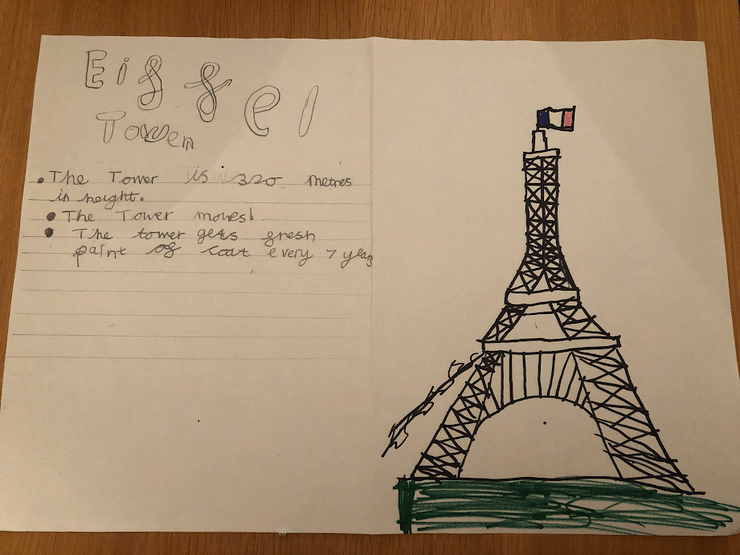 Eiffel
Tower
• The Tower is 320 metres
in height.
• The Tower moves!
• The tower gets fresh
paint of coat every 7 years